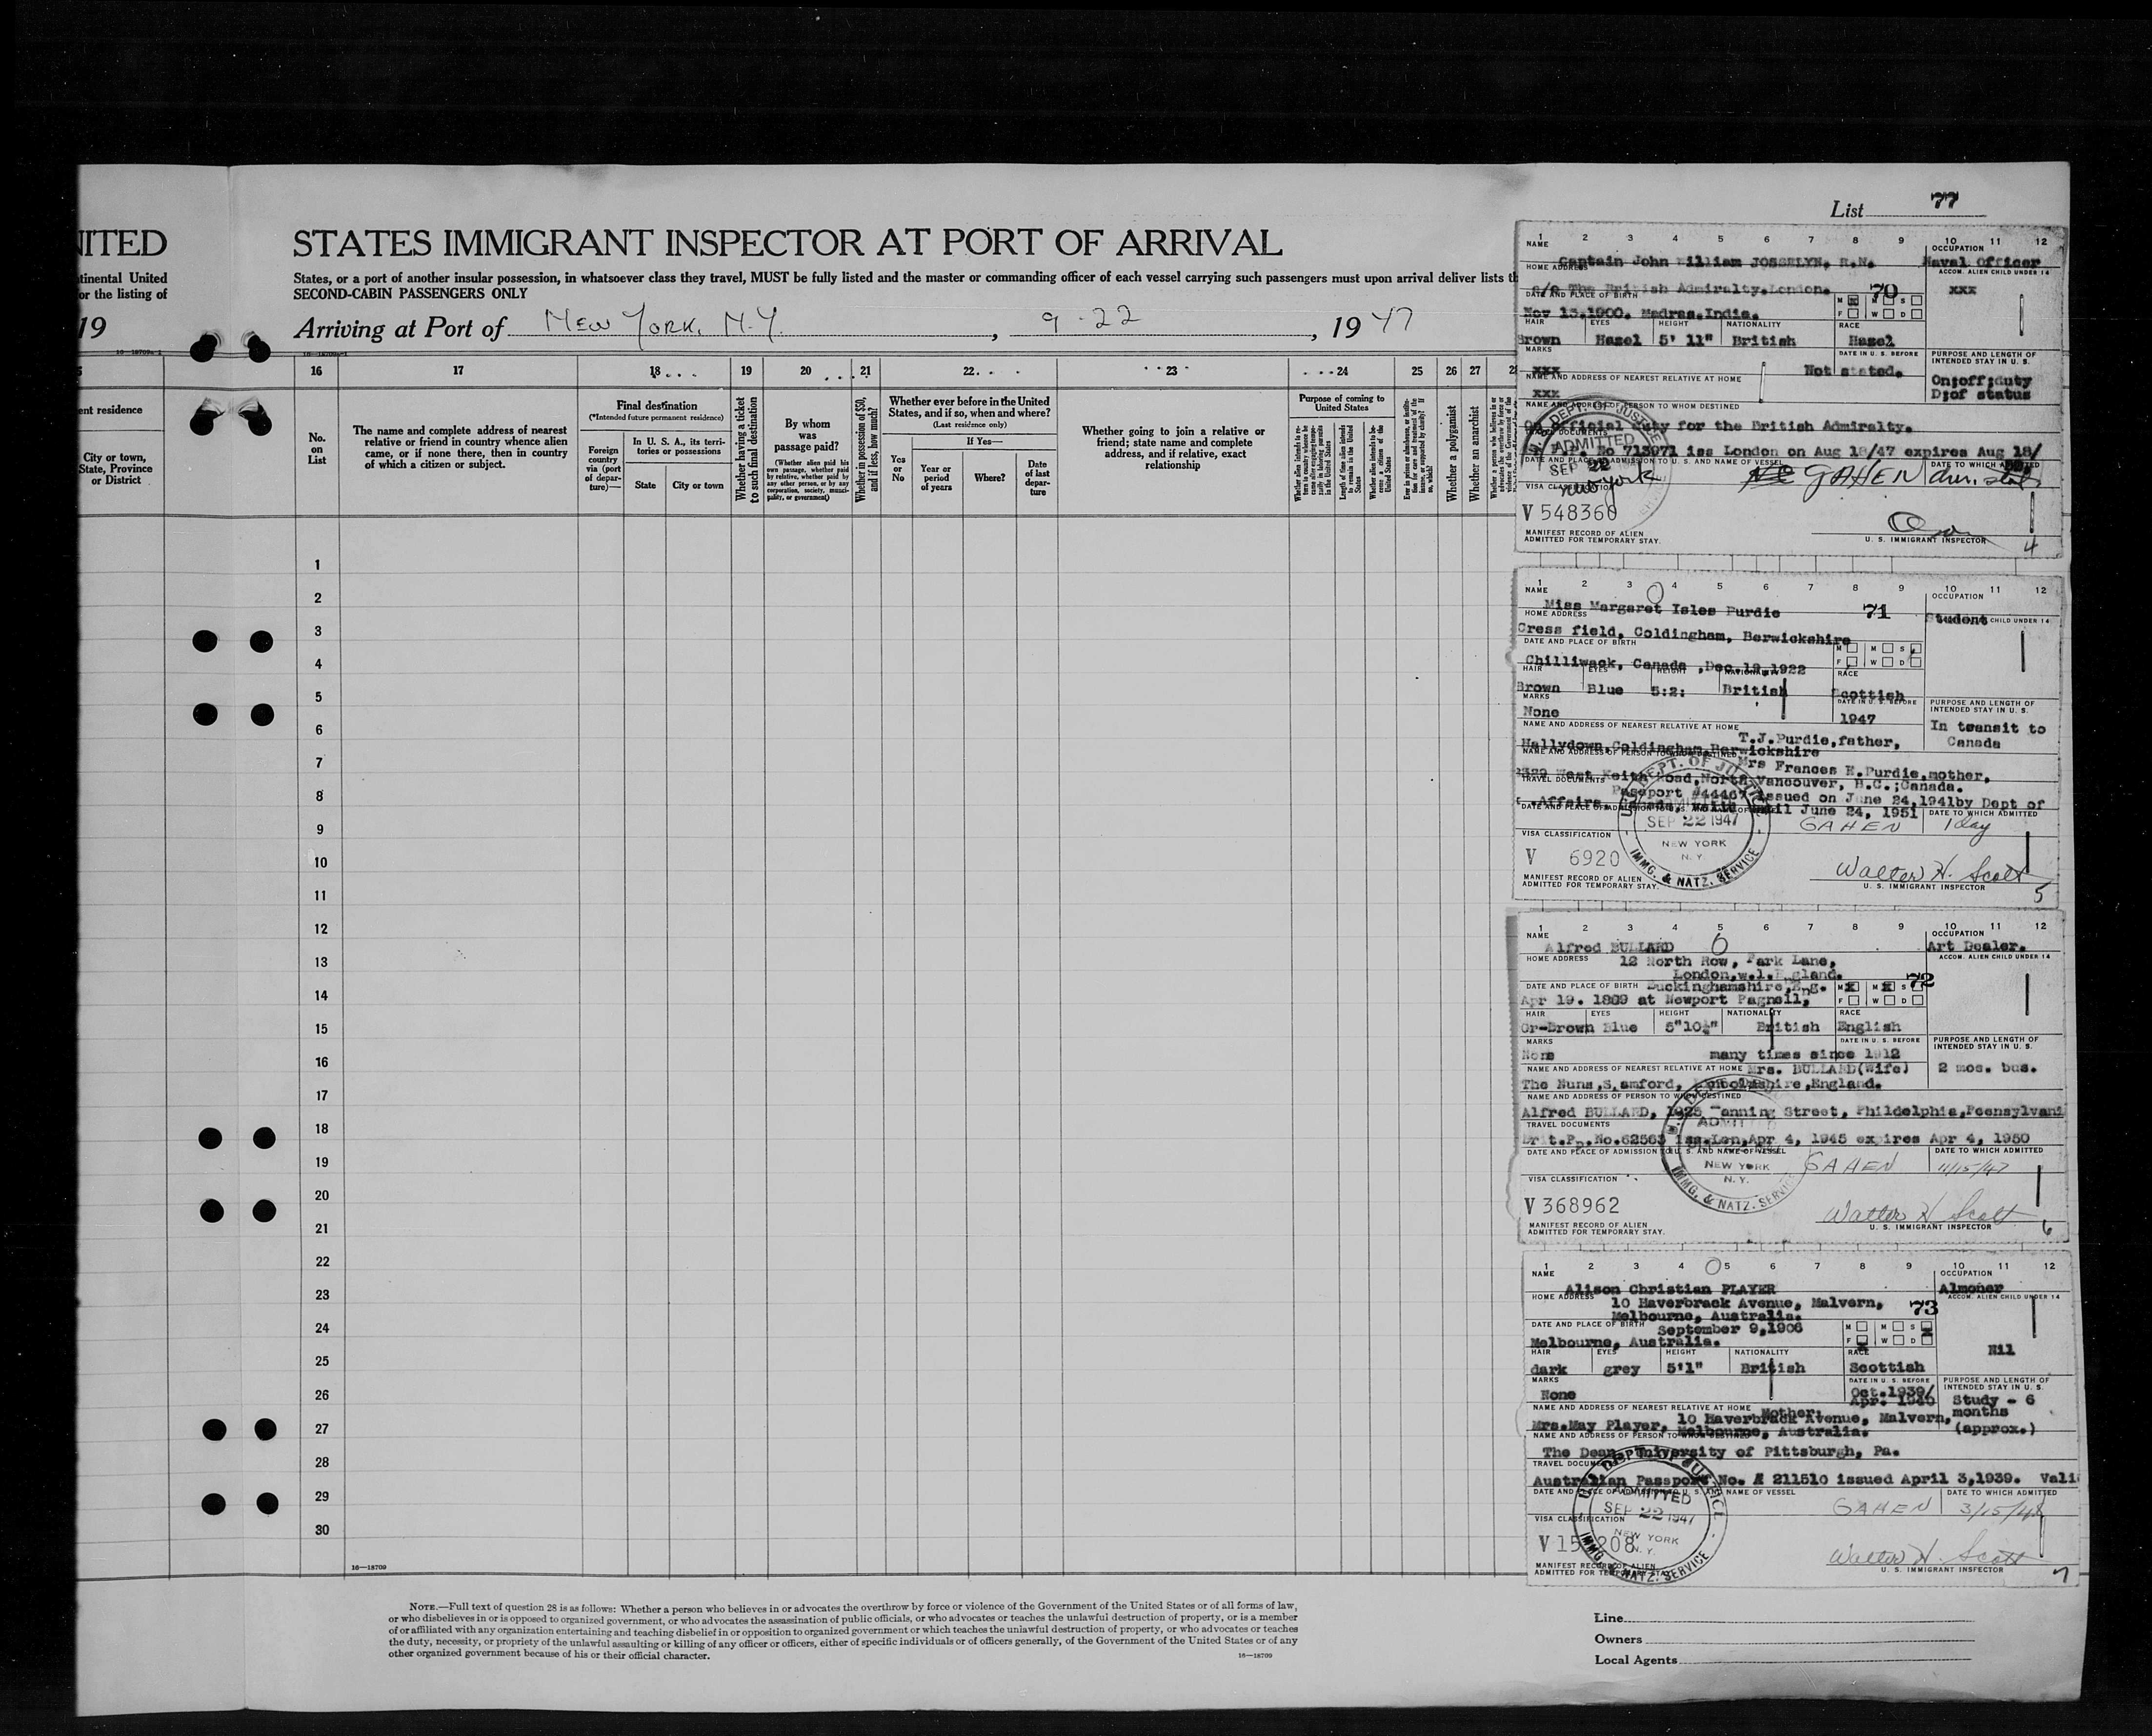 List 77
NITED
STATES IMMIGRANT INSPECTOR AT PORT OF ARRIVAL
tinental United
or the listing of
States, or a port of another insular possession, in whatsoever class they travel, MUST be fully listed and the master or commanding officer of each vessel carrying such passengers must upon arrival deliver lists th
SECOND-CABIN PASSENGERS ONLY
19
Arriving at Port of New York, N.Y. , 9-22 , 1947
16—18709a-1
16 17 18 19 20 21 22 23 24 25 26 27 28
ent residence
City or town,
State, Province
or District
No.
on
List
The name and complete address of nearest
relative or friend in country whence alien
came, or if none there, then in country
of which a citizen or subject.
Final destination
(*Intended future permanent residence)
Foreign
country
via (port
of depar-
ture)—
In U. S. A., its terri-
tories or possessions
State
City or town
Whether having a ticket
to such final destination
By whom
was
passage paid?
(Whether alien paid his
own passage, whether paid
by relative, whether paid by
any other person, or by any
corporation, society, munici-
pality, or government)
Whether in possession of $50,
and if less, how much?
Whether ever before in the United
States, and if so, when and where?
(Last residence only)
Yes
or
No
If Yes—
Year or
period
of years
Where?
Date
of last
depar-
ture
Whether going to join a relative or
friend; state name and complete
address, and if relative, exact
relationship
Purpose of coming to
United States
Length of time alien intends
to remain in the United
States
Whether alien intends to be-
come a citizen of the
United States
Whether a polygamist
Whether an anarchist
1
2
3
4
5
6
7
8
9
10
11
12
13
14
15
16
17
18
19
20
21
22
23
24
25
26
27
28
29
30
16—18709
NOTE.—Full text of question 28 is as follows: Whether a person who believes in or advocates the overthrow by force or violence of the Government of the United States or of all forms of law,
or who disbelieves in or is opposed to organized government, or who advocates the assassination of public officials, or who advocates or teaches the unlawful destruction of property, or is a member
of or affiliated with any organization entertaining and teaching disbelief in or opposition to organized government or which teaches the unlawful destruction of property, or who advocates or teaches
the duty, necessity, or propriety of the unlawful assaulting or killing of any officer or officers, either of specific individuals or of officers generally, of the Government of the United States or of any
other organized government because of his or their official character.
16—18709
1 2 3 4 5 6 7 8 9 10 11 12
NAME OCCUPATION
Captain John William JOSSELYN, R.N. Naval Officer
HOME ADDRESS ACCOM. ALIEN CHILD UNDER 14
c/o The British Admiralty.London. 70 xxx
DATE AND PLACE OF BIRTH M M S
F W D
Nov 13.1900. Madras.India.
HAIR EYES HEIGHT NATIONALITY RACE
Brown Hazel 5' 11" British Hazel
MARKS DATE IN U. S. BEFORE PURPOSE AND LENGTH OF
INTENDED STAY IN U. S.
xxx Not stated.
NAME AND ADDRESS OF NEAREST RELATIVE AT HOME On;off;duty
xxx D;of status
NAME AND ADDRESS OF PERSON TO WHOM DESTINED
On official duty for the British Admiralty.
TRAVEL DOCUMENTS
No 713071 iss London on Aug 18/47 expires Aug 18/
DATE AND PLACE OF ADMISSION TO U. S. AND NAME OF VESSEL DATE TO WHICH ADMITTED
DEPT. OF JUSTICE
ADMITTED
SEP 22
New York
GAHEN
VISA CLASSIFICATION
V 548360
MANIFEST RECORD OF ALIEN
ADMITTED FOR TEMPORARY STAY.
U. S. IMMIGRANT INSPECTOR
4
1 2 3 4 5 6 7 8 9 10 11 12
NAME OCCUPATION
Miss Margaret Isles Purdie 71 Student
HOME ADDRESS CHILD UNDER 14
Cress field, Coldingham, Berwickshire
DATE AND PLACE OF BIRTH M M S
F W D
Chilliwack, Canada ,Dec.12,1922
HAIR EYES HEIGHT NATIONALITY RACE
Brown Blue 5:2: British Scottish
MARKS DATE IN U. S. BEFORE PURPOSE AND LENGTH OF
INTENDED STAY IN U. S.
None 1947 In transit to
Canada
NAME AND ADDRESS OF NEAREST RELATIVE AT HOME
T.J.Purdie,father,
Hallydown,Coldingham,Berwickshire
NAME AND ADDRESS OF PERSON TO WHOM DESTINED
Mrs Frances E.Purdie,mother,
West Keith Road,North Vancouver, B.C.;Canada.
TRAVEL DOCUMENTS
Passport #44467 issued on June 24,1941by Dept of
.Affairs, Canada, valid until June 24, 1951
DATE TO WHICH ADMITTED
GAHEN 1 day
DEPT. OF JUSTICE
SEP 22 1947
NEW YORK
N. Y.
IMMG. & NATZ. SERVICE
VISA CLASSIFICATION
V 6920
Walter H. Scott
MANIFEST RECORD OF ALIEN
ADMITTED FOR TEMPORARY STAY.
U. S. IMMIGRANT INSPECTOR
5
1 2 3 4 5 6 7 8 9 10 11 12
NAME OCCUPATION
Alfred BULLARD Art Dealer.
HOME ADDRESS ACCOM. ALIEN CHILD UNDER 14
12 North Row, Park Lane,
London,w.1.England. 72
DATE AND PLACE OF BIRTH Buckinghamshire,Eng. M M S
F W D
Apr 19. 1889 at Newport Pagnell,
HAIR EYES HEIGHT NATIONALITY RACE
Gr-Brown Blue 5"10½" British English
MARKS DATE IN U. S. BEFORE PURPOSE AND LENGTH OF
INTENDED STAY IN U. S.
None many times since 1912
NAME AND ADDRESS OF NEAREST RELATIVE AT HOME Mrs. BULLARD(Wife) 2 mos. bus.
The Nuns,Stamford, Lincolnshire,England.
NAME AND ADDRESS OF PERSON TO WHOM DESTINED
Alfred BULLARD, 1925 Manning Street, Phildelphia,Peensylvani
TRAVEL DOCUMENTS
Brit.Pp.No.62563 iss.Lon,Apr 4, 1945 expires Apr 4, 1950
DATE AND PLACE OF ADMISSION TO U. S. AND NAME OF VESSEL DATE TO WHICH ADMITTED
ADMITTED
NEW YORK
N. Y.
IMMG. & NATZ. SERVICE
GAHEN 11/15/47
VISA CLASSIFICATION
V 368962
Walter H Scott
MANIFEST RECORD OF ALIEN
ADMITTED FOR TEMPORARY STAY.
U. S. IMMIGRANT INSPECTOR
6
1 2 3 4 5 6 7 8 9 10 11 12
NAME OCCUPATION
Alison Christian PLAYER Almoner
HOME ADDRESS ACCOM. ALIEN CHILD UNDER 14
10 Haverbrack Avenue, Malvern, 73
Melbourne, Australia.
DATE AND PLACE OF BIRTH September 9,1906 M M S
F W D
Melbourne, Australia. Nil
HAIR EYES HEIGHT NATIONALITY RACE
dark grey 5'1" British Scottish
MARKS DATE IN U. S. BEFORE PURPOSE AND LENGTH OF
INTENDED STAY IN U. S.
None Oct.1939/
Apr. 1940 Study - 6
months
(approx.)
NAME AND ADDRESS OF NEAREST RELATIVE AT HOME Mother:
Mrs.May Player, 10 Haverbrack Avenue, Malvern,
Melbourne, Australia.
NAME AND ADDRESS OF PERSON TO WHOM DESTINED
The Dean, University of Pittsburgh, Pa.
TRAVEL DOCUMENTS
Australian Passport No. A 211510 issued April 3,1939. Vali
DATE AND PLACE OF ADMISSION TO U. S. AND NAME OF VESSEL DATE TO WHICH ADMITTED
DEPT. OF JUSTICE
ADMITTED
SEP 22 1947
NEW YORK
N. Y.
IMMG. & NATZ. SERVICE
GAHEN 3/15/48
VISA CLASSIFICATION
Walter H. Scott
MANIFEST RECORD OF ALIEN
ADMITTED FOR TEMPORARY STAY.
U. S. IMMIGRANT INSPECTOR
7
Line
Owners
Local Agents